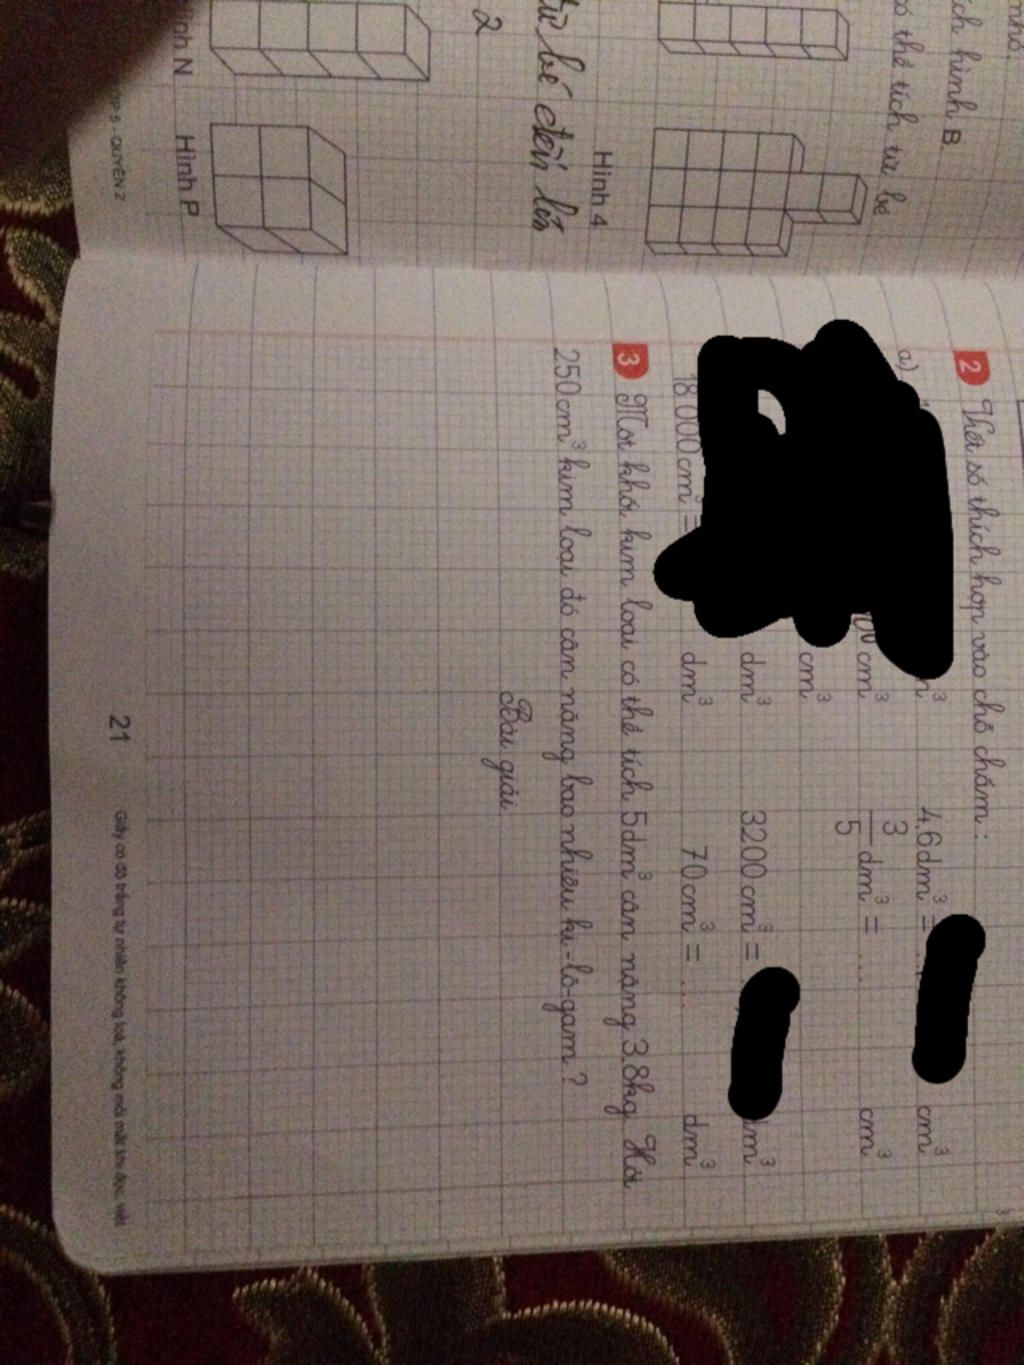 nhỏ.
ích hình B.
có thể tích từ bé
Hình 4
từ bé đến lớn
2
Hình N
Hình P
ỚP 5 - QUYỂN 2
2 Viết số thích hợp vào chỗ chấm:
a)
4,6dm³ = ... cm³
cm³
3/5 dm³ = .... cm³
cm³
dm³
3200cm³ = dm³
18 000cm³ = dm³
70cm³ = ... dm³
3 Một khối kim loại có thể tích 5dm³ cân nặng 3,8kg. Hỏi
250cm³ kim loại đó cân nặng bao nhiêu ki-lô-gam?
Bài giải
21
Giấy có độ trắng tự nhiên không loá, không mỏi mắt khi đọc, viết